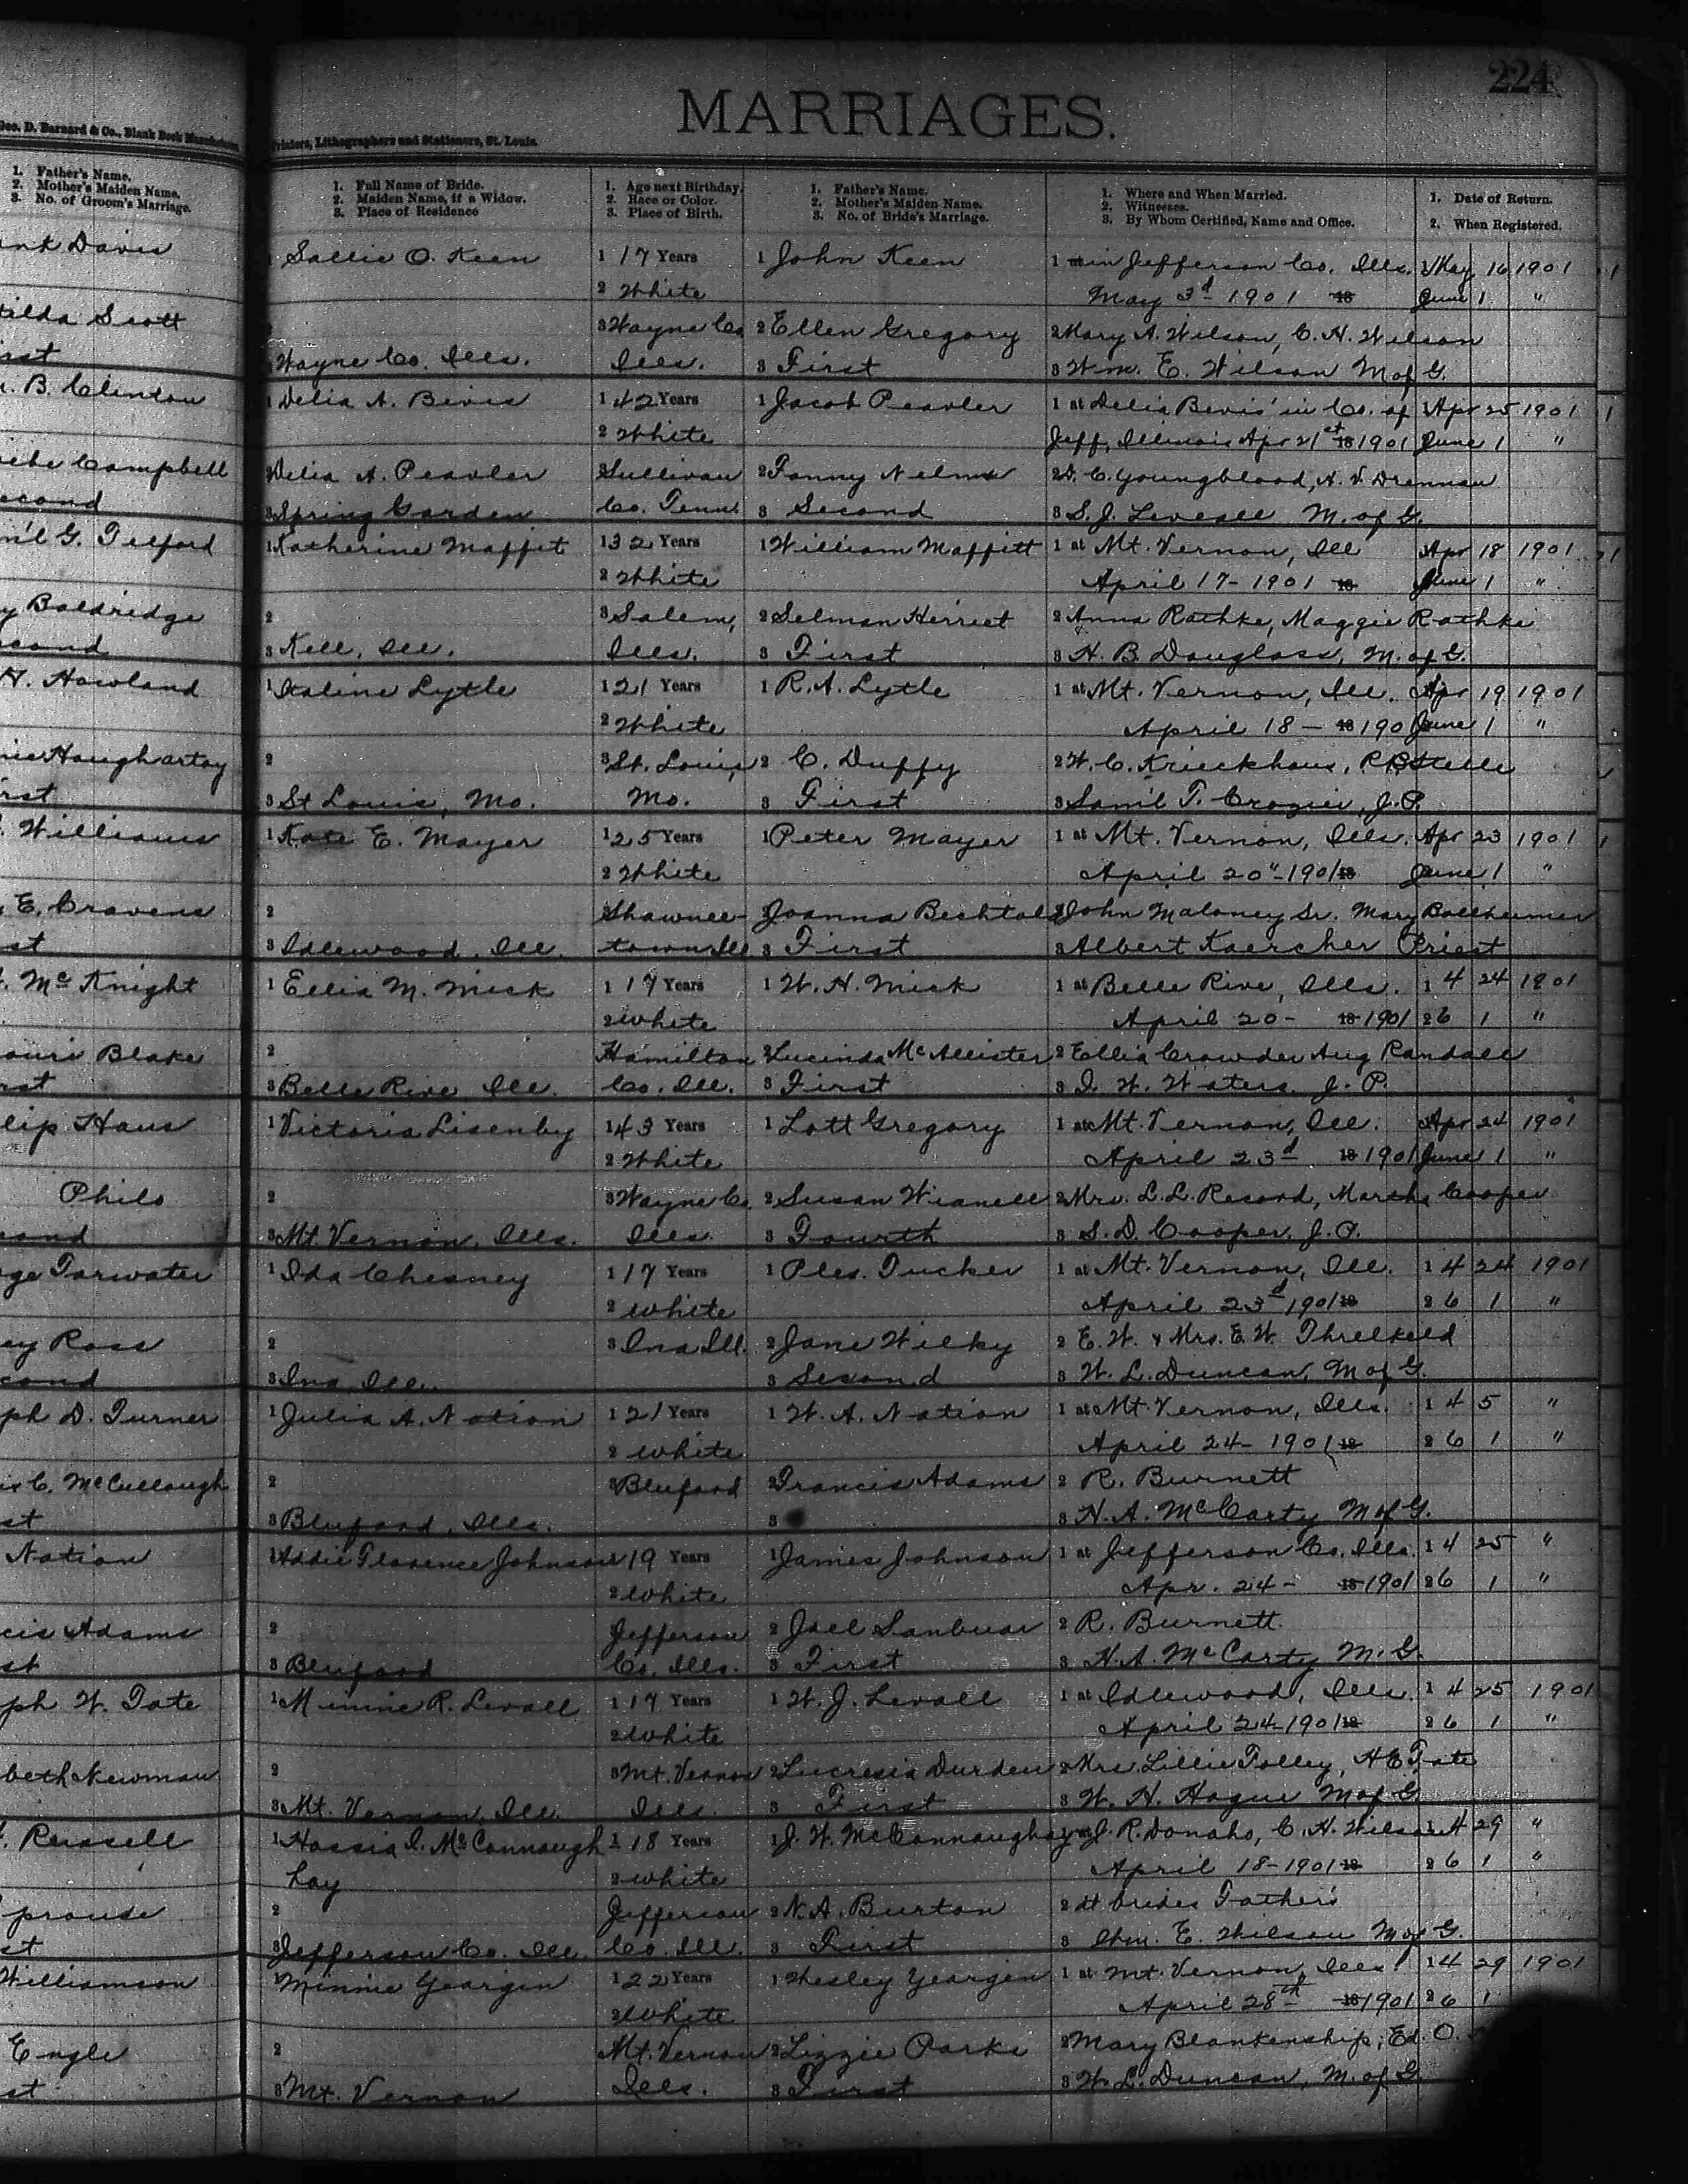 224
MARRIAGES.
Geo. D. Barnard & Co., Blank Book Manufacturers,
Printers, Lithographers and Stationers, St. Louis.
1. Father's Name.
2. Mother's Maiden Name.
3. No. of Groom's Marriage.
1. Full Name of Bride.
2. Maiden Name, if a Widow.
3. Place of Residence
1. Age next Birthday.
2. Race or Color.
3. Place of Birth.
1. Father's Name.
2. Mother's Maiden Name.
3. No. of Bride's Marriage.
1. Where and When Married.
2. Witnesses.
3. By Whom Certified, Name and Office.
1. Date of Return.
2. When Registered.
Davis 1 Sallie O. Keen 1 17 Years 1 John Keen 1 in Jefferson Co. Ills. May 16 1901
2 White May 3d 1901 18 June 1 "
Scott 3 Wayne Co 2 Ellen Gregory 2 Mary A. Wilson, C. H. Wilson
Wayne Co. Ills. Ills. 3 First 3 Wm. E. Wilson M of G.
B. Clinton 1 Delia A. Bevis 1 42 Years 1 Jacob Peavler 1 at Delia Bevis' in Co. of Apr 25 1901
2 White Jeff, Illinois Apr 21st 18 1901 June 1 "
Campbell 2 Delia A. Peavler 3 Sullivan 2 Fanny Nelms 2 D. C. Youngblood, H. V. Drennan
3 Spring Garden Co. Tenn. 3 Second 3 S. J. Levesell M. of G.
G. Telford 1 Katherine Maffit 1 32 Years 1 William Maffitt 1 at Mt. Vernon, Ill Apr 18 1901
2 White April 17 - 1901 18 June 1 "
Baldridge 2 3 Salem, 2 Selman Herriet 2 Anna Rathke, Maggie Rathke
3 Kell, Ill. Ills. 3 First 3 H. B. Douglass, M. of G.
H. Howland 1 Italine Lytle 1 21 Years 1 R. A. Lytle 1 at Mt. Vernon, Ill. Apr 19 1901
2 White April 18 - 18 190 June 1 "
Haughartay 2 3 St. Louis 2 C. Duffy 2 W. C. Krieckhaus, Stelle
3 St Louis, Mo. Mo. 3 First 3 Sam'l T. Crozier, J. P.
Williams 1 Kate E. Mayer 1 25 Years 1 Peter Mayer 1 at Mt. Vernon, Ills. Apr 23 1901
2 White April 20" - 1901 18 June 1 "
E. Cravens 2 Shawnee- 2 Joanna Bechtold 2 John Maloney Sr. Mary Bollheimer
3 Idlewood, Ill. town Ill 3 First 3 Albert Kaercher Priest
McKnight 1 Ellia M. Mick 1 17 Years 1 W. H. Mick 1 at Belle Rive, Ills. 1 4 24 1901
2 White April 20 - 18 1901 2 6 1 "
Blake 2 Hamilton 2 Lucinda McAllister 2 Ellia Crowder Aug Randall
3 Belle Rive, Ill. Co. Ill. 3 First 3 I. W. Waters. J. P.
Haus 1 Victoria Lisenby 1 43 Years 1 Lott Gregory 1 at Mt. Vernon, Ill. Apr 24 1901
2 White April 23d 18 1901 June 1 "
Philo 2 3 Wayne Co. 2 Susan Wianell 2 Mrs. L. L. Record, Martha Cooper
3 Mt. Vernon, Ills. Ills. 3 Fourth 3 S. D. Cooper, J. P.
Tarwater 1 Ida Chesney 1 17 Years 1 Ples. Tucker 1 at Mt. Vernon, Ill. 1 4 24 1901
2 White April 23d 1901 18 2 6 1 "
Ross 2 3 Ina Ill. 2 Jane Wilky 2 E. W. & Mrs. E. W. Threlkeld
3 Ina Ill. 3 Second 3 W. L. Duncan, M of G.
D. Turner 1 Julia A. Nation 1 21 Years 1 W. A. Nation 1 at Mt. Vernon, Ills. 1 4 5 "
2 White April 24 - 1901 18 2 6 1 "
C. McCullough 2 3 Bluford 2 Francis Adams 2 R. Burnett
3 Bluford, Ills. 3 3 H. A. McCarty M of G.
Nation 1 Addie Florence Johnson 1 19 Years 1 James Johnson 1 at Jefferson Co. Ills. 1 4 25 "
2 White Apr. 24 - 18 1901 2 6 1 "
Adams 2 Jefferson 2 Jael Sanbuar 2 R. Burnett.
3 Bluford Co. Ills. 3 First 3 H. A. McCarty M. G.
W. Tate 1 Minnie R. Levall 1 17 Years 1 W. J. Levall 1 at Idlewood, Ills. 1 4 25 1901
2 White April 24 - 1901 18 2 6 1 "
Newman 2 3 Mt. Vernon 2 Lucresia Durden 2 Mrs. Lillie Tolley, H E Tate
3 Mt. Vernon, Ill. Ills. 3 First 3 W. H. Hogue M of G.
Russell 1 Hassia I. McConnaugh 1 18 Years 1 J. W. McConnaughay 1 J. R. Donaho, C. H. Wilson 1 4 29 "
hay 2 White April 18 - 1901 18 2 6 1 "
2 Jefferson 2 N. A. Burton 2 At brides Father's
3 Jefferson Co. Ill. Co. Ill. 3 First 3 Wm. E. Wilson M of G.
Williamson 1 Minnie Yeargin 1 22 Years 1 Wesley Yeargin 1 at Mt. Vernon, Ills. 1 4 29 1901
2 White April 28th 18 1901 2 6 1
Engle 2 Mt. Vernon 2 Lizzie Parks 2 Mary Blankenship, Ed. O.
3 Mt. Vernon Ills. 3 First 3 W. L. Duncan, M. of G.